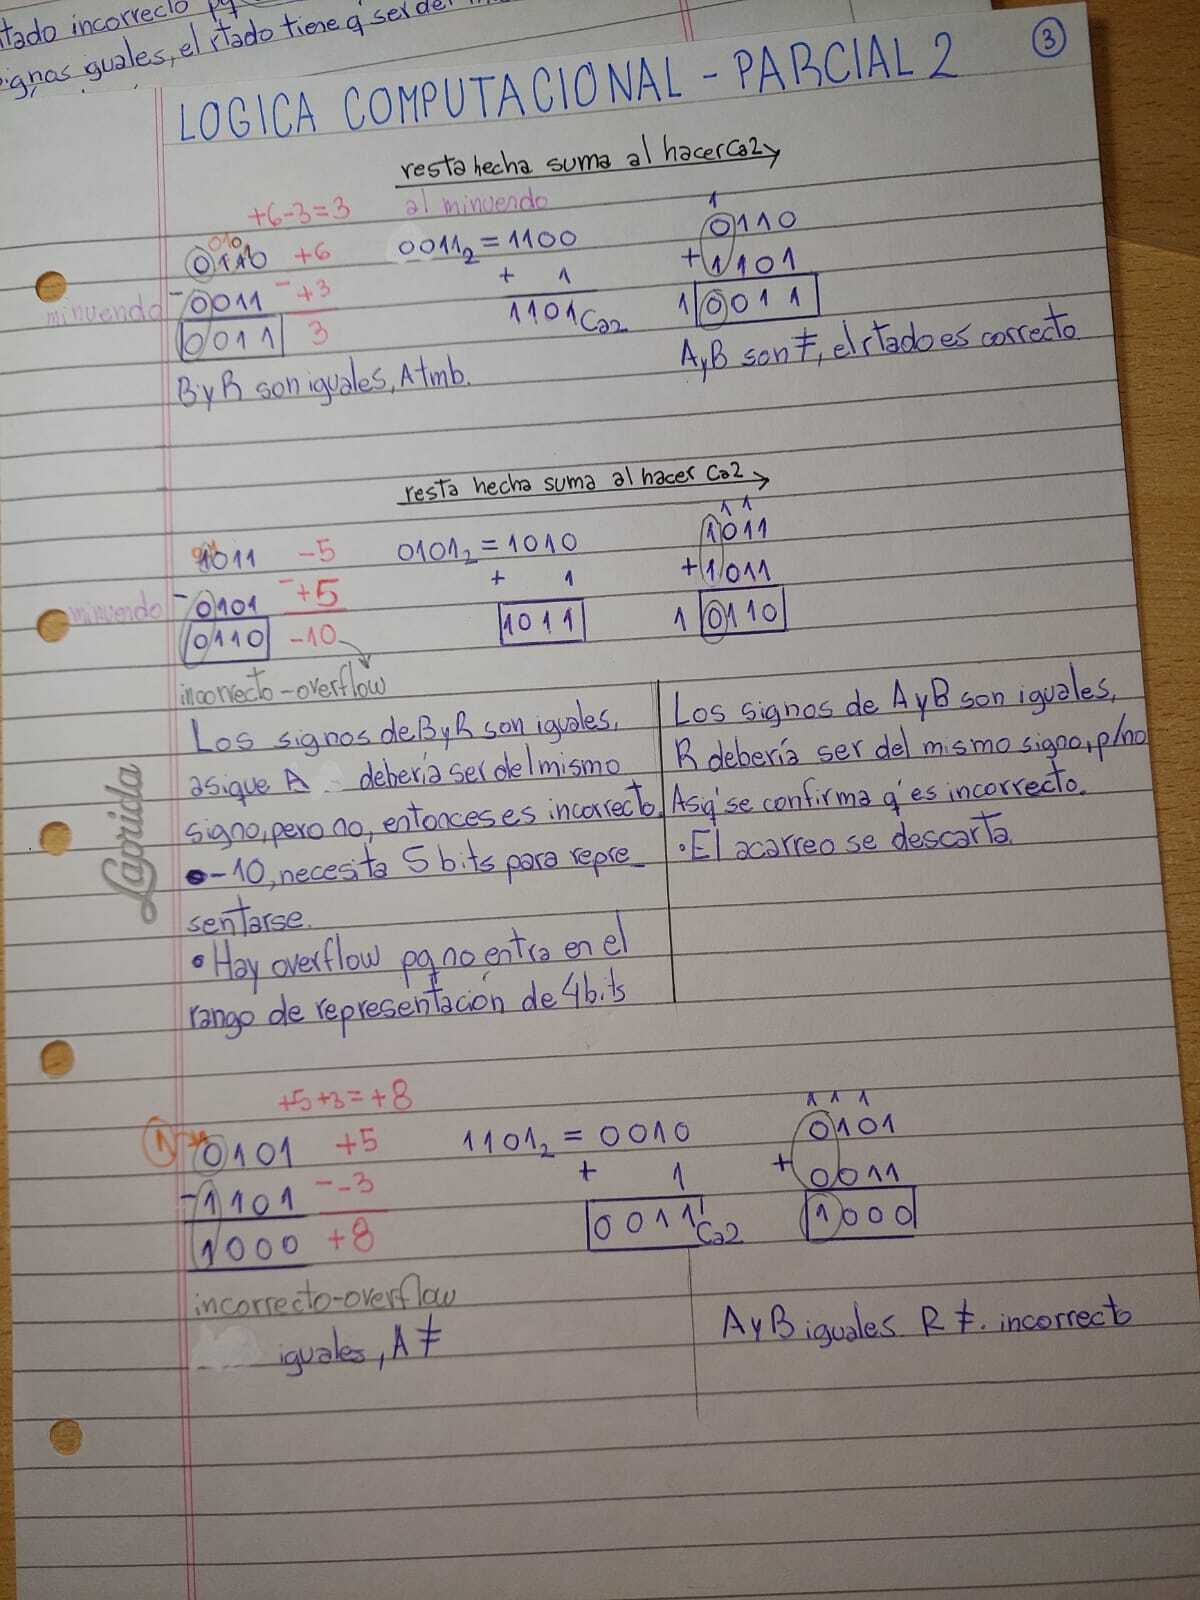 tado incorrecto pq
ignos guales, el rtado tiene q' ser del
3
LOGICA COMPUTACIONAL - PARCIAL 2
resta hecha suma al hacer Ca2
+6-3=3 al minuendo
010 1
0110 +6 0011₂ = 1100 0110
minuendo - 0011 - +3 + 1 + 1101
0011 3 1101 Ca2 1 0011
B y R son iguales, A tmb. A y B son ≠, el rtado es correcto
resta hecha suma al hacer Ca2
1 1
1011 -5 0101₂ = 1010 1011
minuendo - 0101 - +5 + 1 + 1011
0110 -10 1011 1 0110
incorrecto-overflow
Los signos de B y R son iguales,
asique A debería ser del mismo
signo, pero no, entonces es incorrecto.
• -10, necesita 5 bits para repre_
sentarse.
• Hay overflow pq no entra en el
rango de representación de 4 bits
Los signos de A y B son iguales,
R debería ser del mismo signo, p/no
Asq' se confirma q' es incorrecto.
• El acarreo se descarta.
Laprida
+5+3=+8 1 1 1
1 0101 +5 1101₂ = 0010 0101
- 1101 - -3 + 1 + 0011
1000 +8 0011 Ca2 1000
incorrecto-overflow
iguales, A ≠
A y B iguales R ≠. incorrecto